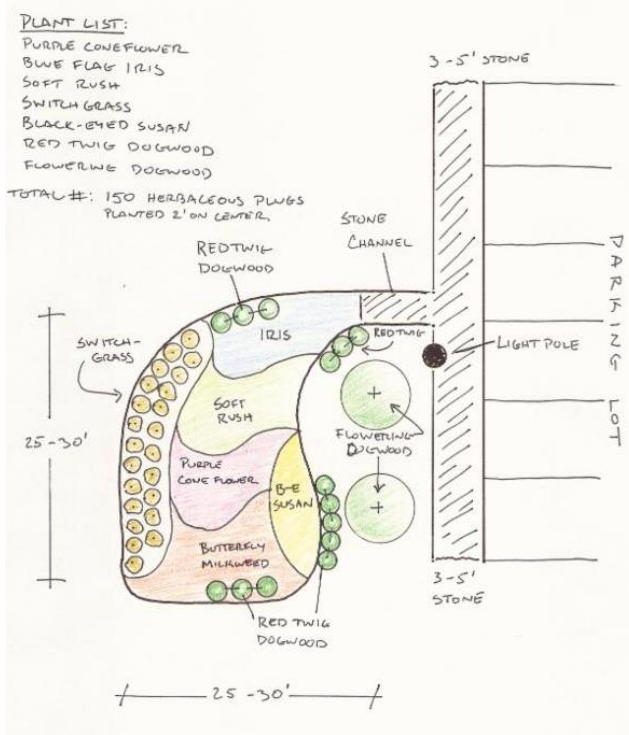 PLANT LIST:
PURPLE CONEFLOWER
BLUE FLAG IRIS
SOFT RUSH
SWITCHGRASS
BLACK-EYED SUSAN
RED TWIG DOGWOOD
FLOWERING DOGWOOD
TOTAL #: 150 HERBACEOUS PLUGS
PLANTED 2' ON CENTER.
3-5' STONE
STONE
CHANNEL
RED TWIG
DOGWOOD
IRIS
RED TWIG
LIGHT POLE
PARKING LOT
SWITCH-
GRASS
SOFT
RUSH
FLOWERING
DOGWOOD
25-30'
PURPLE
CONE FLOWER
B-E
SUSAN
BUTTERFLY
MILKWEED
3-5'
STONE
RED TWIG
DOGWOOD
25-30'